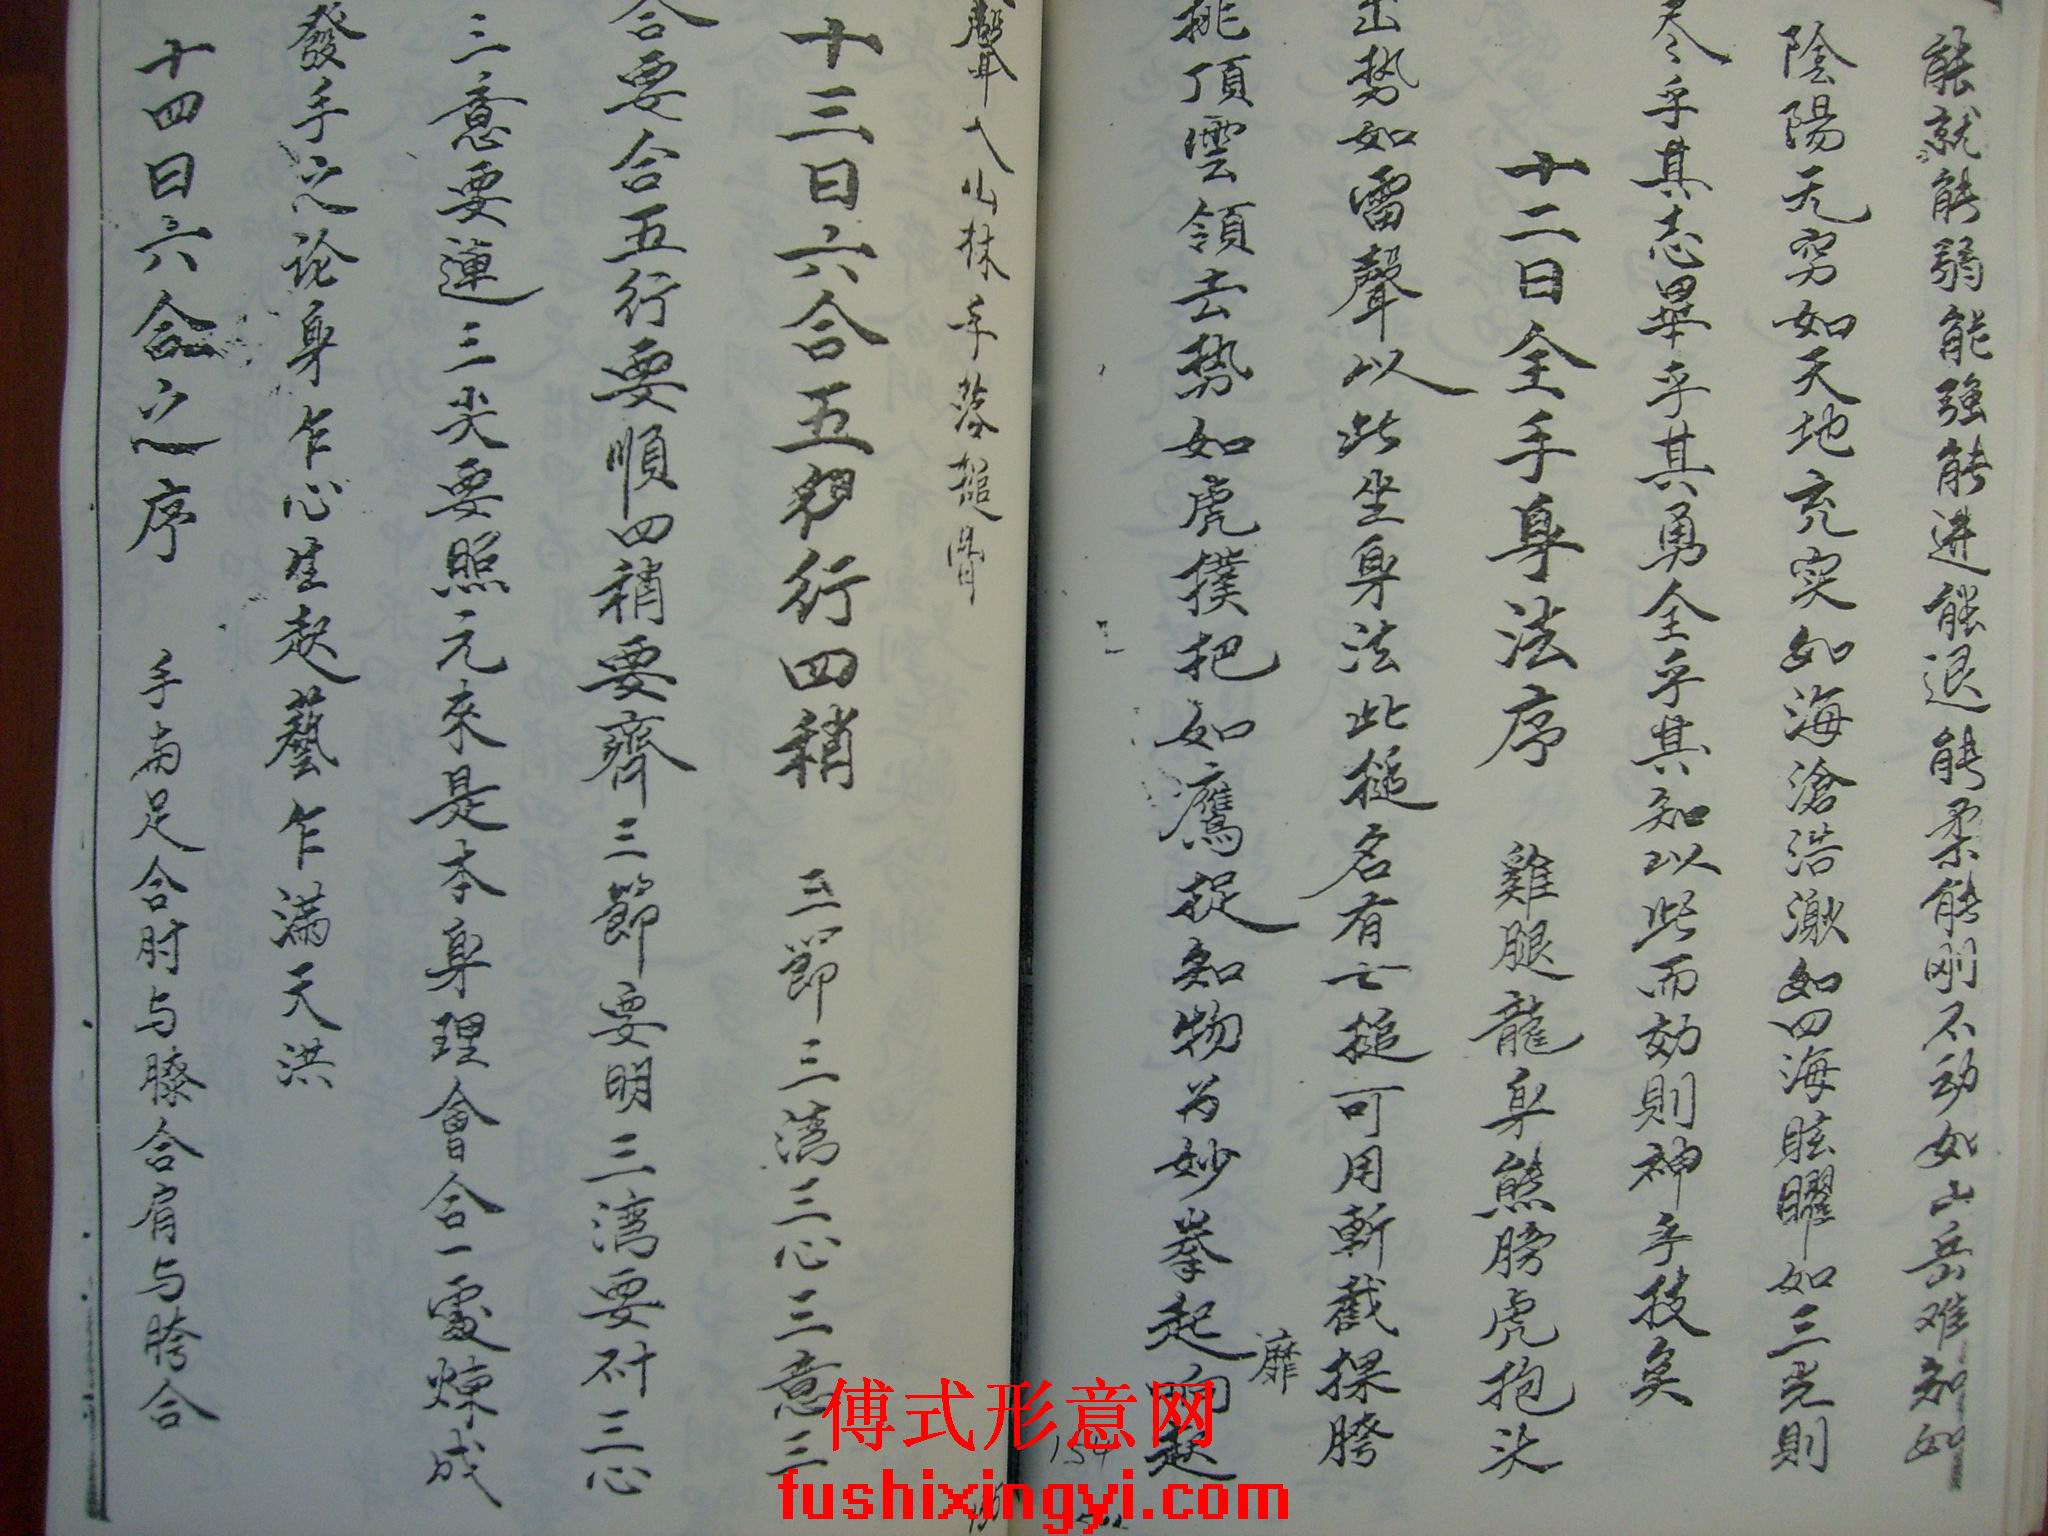 能就能弱能强能进能退能柔能刚不动如山岳难知如
陰陽无穷如天地充实如海滄浩渺如四海眩曜如三光則
尽乎其志畢乎其勇全乎其知以此而効則神乎技矣
十二曰全手身法序 雞腿龍身熊膀虎抱头
出势如雷聲以此坐身法此搥名有七搥可用斬截裸胯
挑頂雲領去势如虎撲把如鷹捉知物为妙拳起响起
靡
聲入山林手落搥骨
十三曰六合五行四稍 三節三湾三心三意三
合要合五行要順四稍要齊三節要明三湾要对三心
三意要連三尖要照元來是本身理會合一處煉成
發手之论身乍心生起藝乍满天洪
十四曰六合之序 手与足合肘与膝合肩与胯合
154
155
傅式形意网
fushixingyi.com